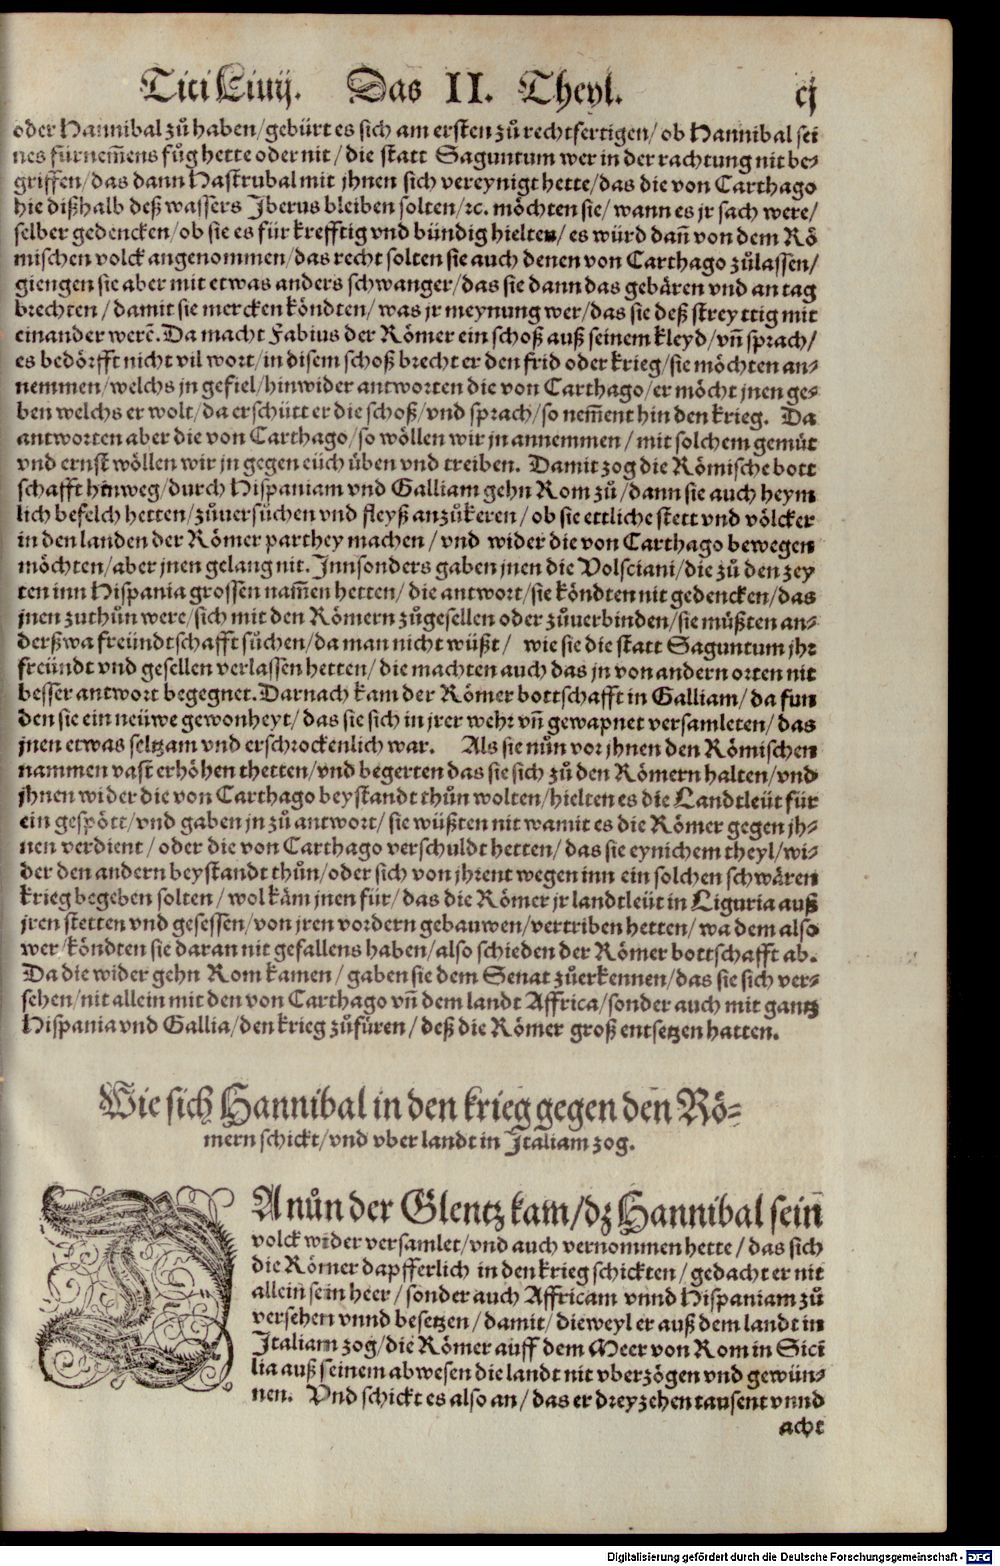 Titi Liuij. Das II. Theyl. cj
oder Hannibal zů haben/gebürt es sich am ersten zů rechtfertigen/ob Hannibal sei
nes fürnem̃ens fůg hette oder nit/die statt Saguntum wer in der rachtung nit be-
griffen/das dann Hastrubal mit jhnen sich vereynigt hette/das die von Carthago
hie dißhalb deß wassers Iberus bleiben solten/ꝛc. möchten sie/wann es jr sach were/
selber gedencken/ob sie es für krefftig vnd bündig hielten/es würd dañ von dem Rö
mischen volck angenommen/das recht solten sie auch denen von Carthago zůlassen/
giengen sie aber mit etwas anders schwanger/das sie dann das gebären vnd an tag
brechten/damit sie mercken köndten/was jr meynung wer/das sie deß streyttig mit
einander werē. Da macht Fabius der Römer ein schoß auß seinem kleyd/vñ sprach/
es bedörfft nicht vil wort/in disem schoß brecht er den frid oder krieg/sie möchten an-
nemmen/welchs jn gefiel/hinwider antworten die von Carthago/er möcht jnen ge-
ben welchs er wolt/da erschütt er die schoß/vnd sprach/so nem̃ent hin den krieg. Da
antworten aber die von Carthago/so wöllen wir jn annemmen/mit solchem gemüt
vnd ernst wöllen wir jn gegen eüch üben vnd treiben. Damit zog die Römische bott
schafft hinweg/durch Hispaniam vnd Galliam gehn Rom zů/dann sie auch heym
lich befelch hetten/zůuersůchen vnd fleyß anzůkeren/ob sie ettliche stett vnd völcker
in den landen der Römer parthey machen/vnd wider die von Carthago bewegen
möchten/aber jnen gelang nit. Innsonders gaben jnen die Volsciani/die zů den zey
ten inn Hispania grossen nam̃en hetten/die antwort/sie köndten nit gedencken/das
jnen zuthůn were/sich mit den Römern zůgesellen oder zůuerbinden/sie můßten an-
derßwa freündtschafft sůchen/da man nicht wüßt/wie sie die statt Saguntum jhr
freündt vnd gesellen verlassen hetten/die machten auch das jn von andern orten nit
besser antwort begegnet. Darnach kam der Römer bottschafft in Galliam/da fun
den sie ein neüwe gewonheyt/das sie sich in jrer wehr vñ gewapnet versamleten/das
jnen etwas seltzam vnd erschrockenlich war. Als sie nůn vor jhnen den Römischen
nammen vast erhöhen thetten/vnd begerten das sie sich zů den Römern halten/vnd
jhnen wider die von Carthago beystandt thůn wolten/hielten es die Landtleüt für
ein gespött/vnd gaben jn zů antwort/sie wüßten nit wamit es die Römer gegen jh-
nen verdient/oder die von Carthago verschuldt hetten/das sie eynichem theyl/wi-
der den andern beystandt thůn/oder sich von jhrent wegen inn ein solchen schwären
krieg begeben solten/wol käm jnen für/das die Römer jr landtleüt in Liguria auß
jren stetten vnd gesessen/von jren vordern gebauwen/vertriben hetten/wa dem also
wer/köndten sie daran nit gefallens haben/also schieden der Römer bottschafft ab.
Da die wider gehn Rom kamen/gaben sie dem Senat zůerkennen/das sie sich ver-
sehen/nit allein mit den von Carthago vñ dem landt Affrica/sonder auch mit gantz
Hispania vnd Gallia/den krieg zůfüren/deß die Römer groß entsetzen hatten.
Wie sich Hannibal in den krieg gegen den Rö-
mern schickt/vnd vber landt in Italiam zog.
DA nůn der Glentz kam/dz Hannibal sein̄
volck wider versamlet/vnd auch vernommen hette/das sich
die Römer dapfferlich in den krieg schickten/gedacht er nit
allein sein heer/sonder auch Affricam vnnd Hispaniam zů
versehen vnnd besetzen/damit/dieweyl er auß dem landt in
Italiam zog/die Römer auff dem Meer von Rom in Sici
lia auß seinem abwesen die landt nit vberzögen vnd gewün-
nen. Vnd schickt es also an/das er dreyzehen tausent vnnd
acht
Digitalisierung gefördert durch die Deutsche Forschungsgemeinschaft - DFG